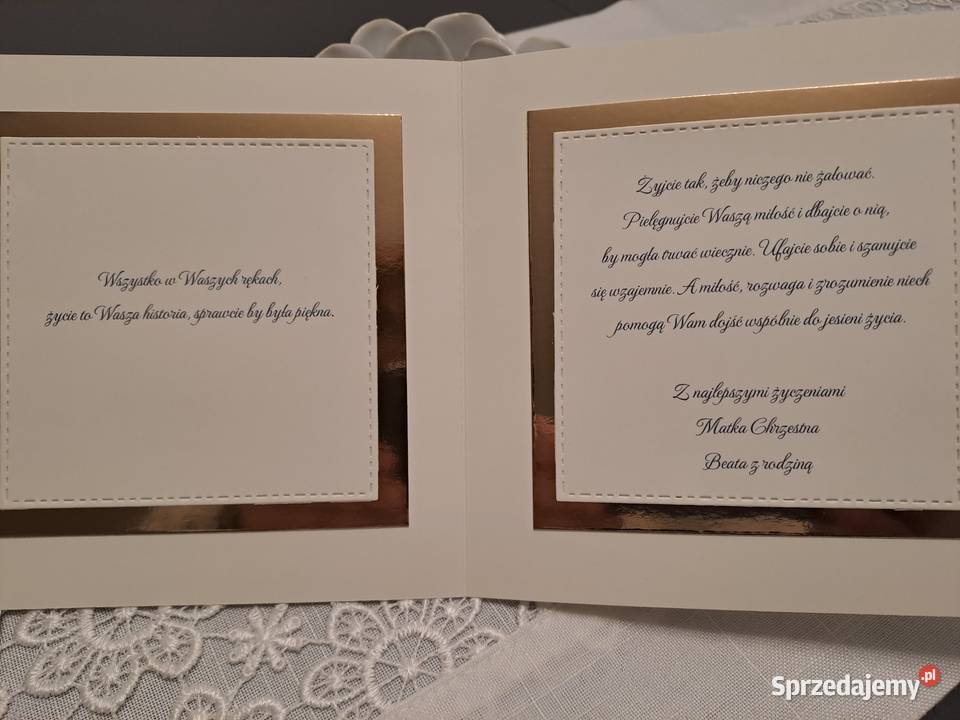 Wszystko w Waszych rękach,
życie to Wasza historia, sprawcie by była piękna.
Żyjcie tak, żeby niczego nie żałować.
Pielęgnujcie Waszą miłość i dbajcie o nią,
by mogła trwać wiecznie. Ufajcie sobie i szanujcie
się wzajemnie. A miłość, rozwaga i zrozumienie niech
pomogą Wam dojść wspólnie do jesieni życia.
Z najlepszymi życzeniami
Matka Chrzestna
Beata z rodziną
Sprzedajemy.pl